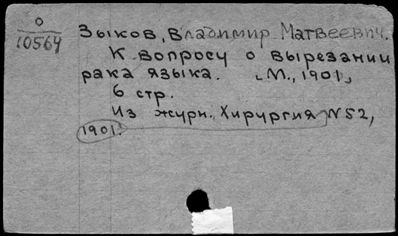 0
10564
Зыков, Владимир Матвеевич.
К вопросу о вырезании
рака языка. [М., 1901]
6 стр.
Из журн. Хирургия N52,
1901.